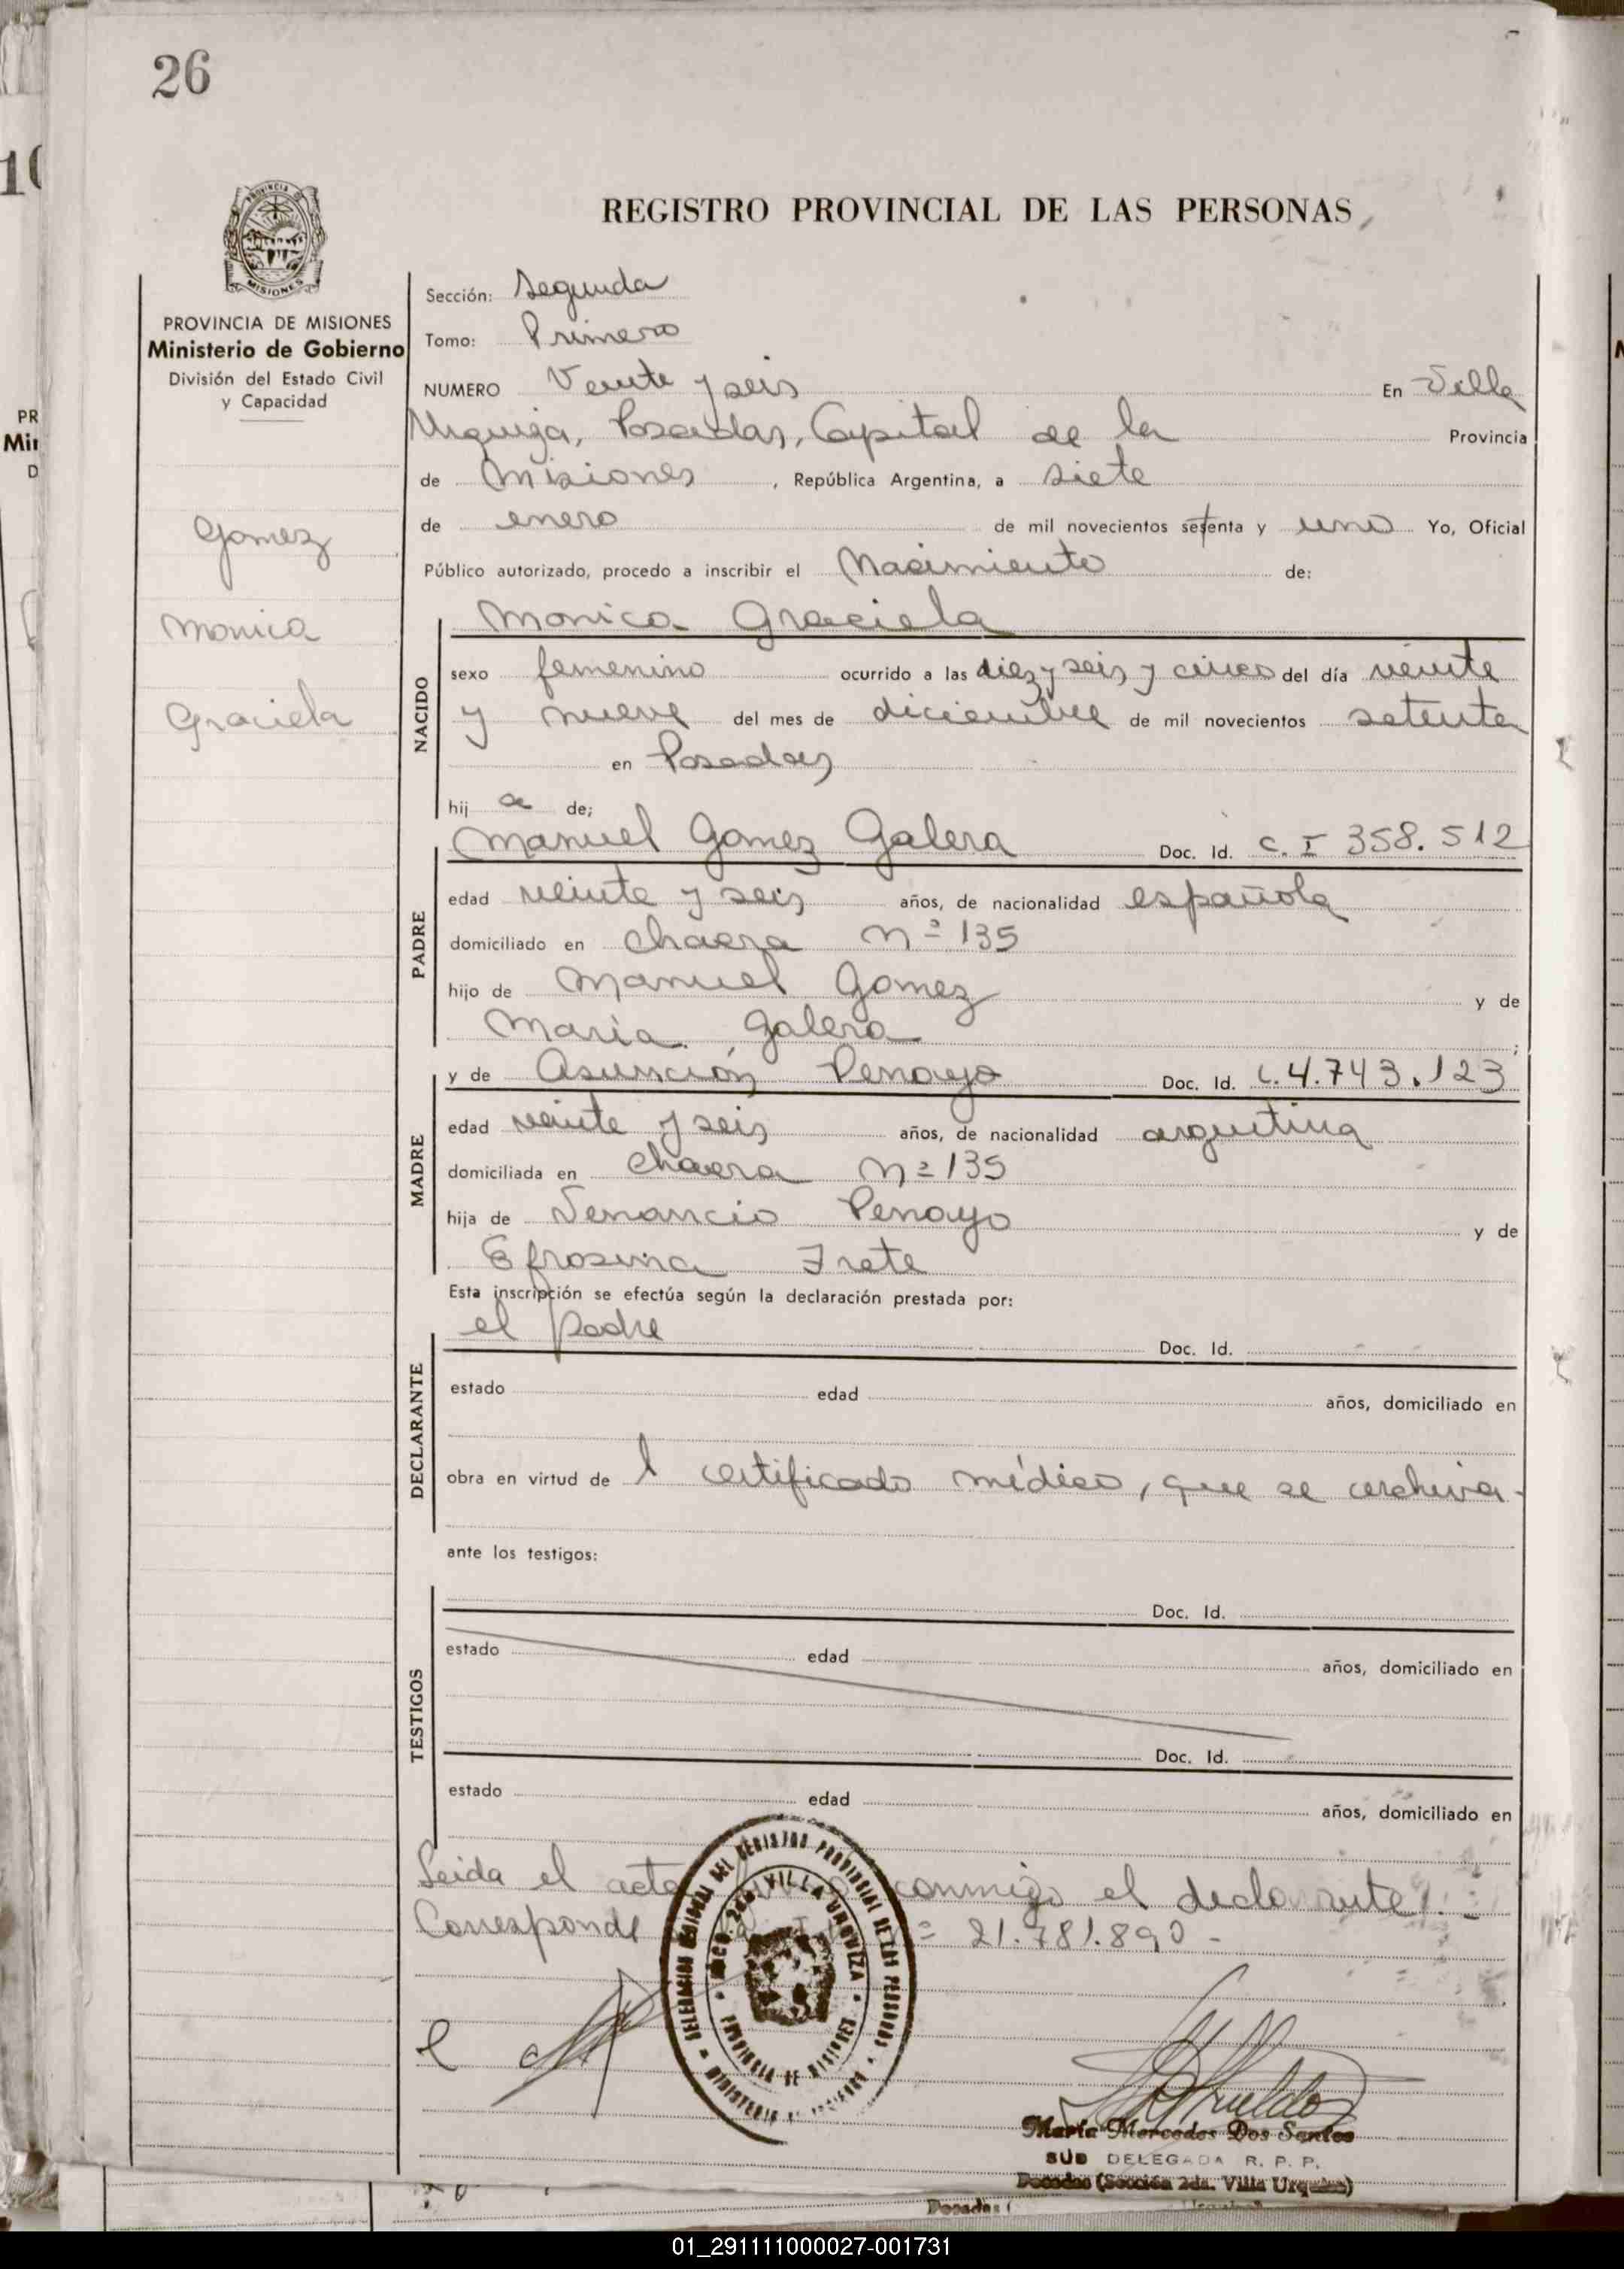 26
PROVINCIA DE MISIONES
Ministerio de Gobierno
División del Estado Civil
y Capacidad
Gomez
Monica
Graciela
REGISTRO PROVINCIAL DE LAS PERSONAS
Sección: Segunda
Tomo: Primero
NUMERO Veinte y seis En Villa
Urquiza, Posadas, Capital de la Provincia
de Misiones, República Argentina, a siete
de enero de mil novecientos setenta y uno Yo, Oficial
Público autorizado, procedo a inscribir el Nacimiento de:
NACIDO
Monica Graciela
sexo femenino ocurrido a las diez y seis y cinco del día veinte
y nueve del mes de diciembre de mil novecientos setenta
en Posadas
hij a de;
PADRE
Manuel Gomez Galera Doc. Id. C. I 358.512
edad veinte y seis años, de nacionalidad española
domiciliado en chacra Nº 135
hijo de Manuel Gomez y de
Maria Galera ;
MADRE
y de Asunción Penayo Doc. Id. C. 4.743.123
edad veinte y seis años, de nacionalidad argentina
domiciliada en chacra Nº 135
hija de Venancio Penayo y de
Efrosina Frete
Esta inscripción se efectúa según la declaración prestada por:
DECLARANTE
el padre Doc. Id.
estado edad años, domiciliado en
obra en virtud de l certificado médico, que se archiva.
ante los testigos:
TESTIGOS
Doc. Id.
estado edad años, domiciliado en
Doc. Id.
estado edad años, domiciliado en
Leida el acta conmigo el declarante.
Corresponde º 21.781.890 -
DELEGACION DEL REGISTRO PROVINCIAL DE LAS PERSONAS
VILLA URQUIZA
PROVINCIA DE MISIONES
MINISTERIO
María Mercedes Dos Santos
SUB DELEGADA R. P. P.
Posadas (Sección 2da. Villa Urquiza)
Posadas (
01_291111000027-001731